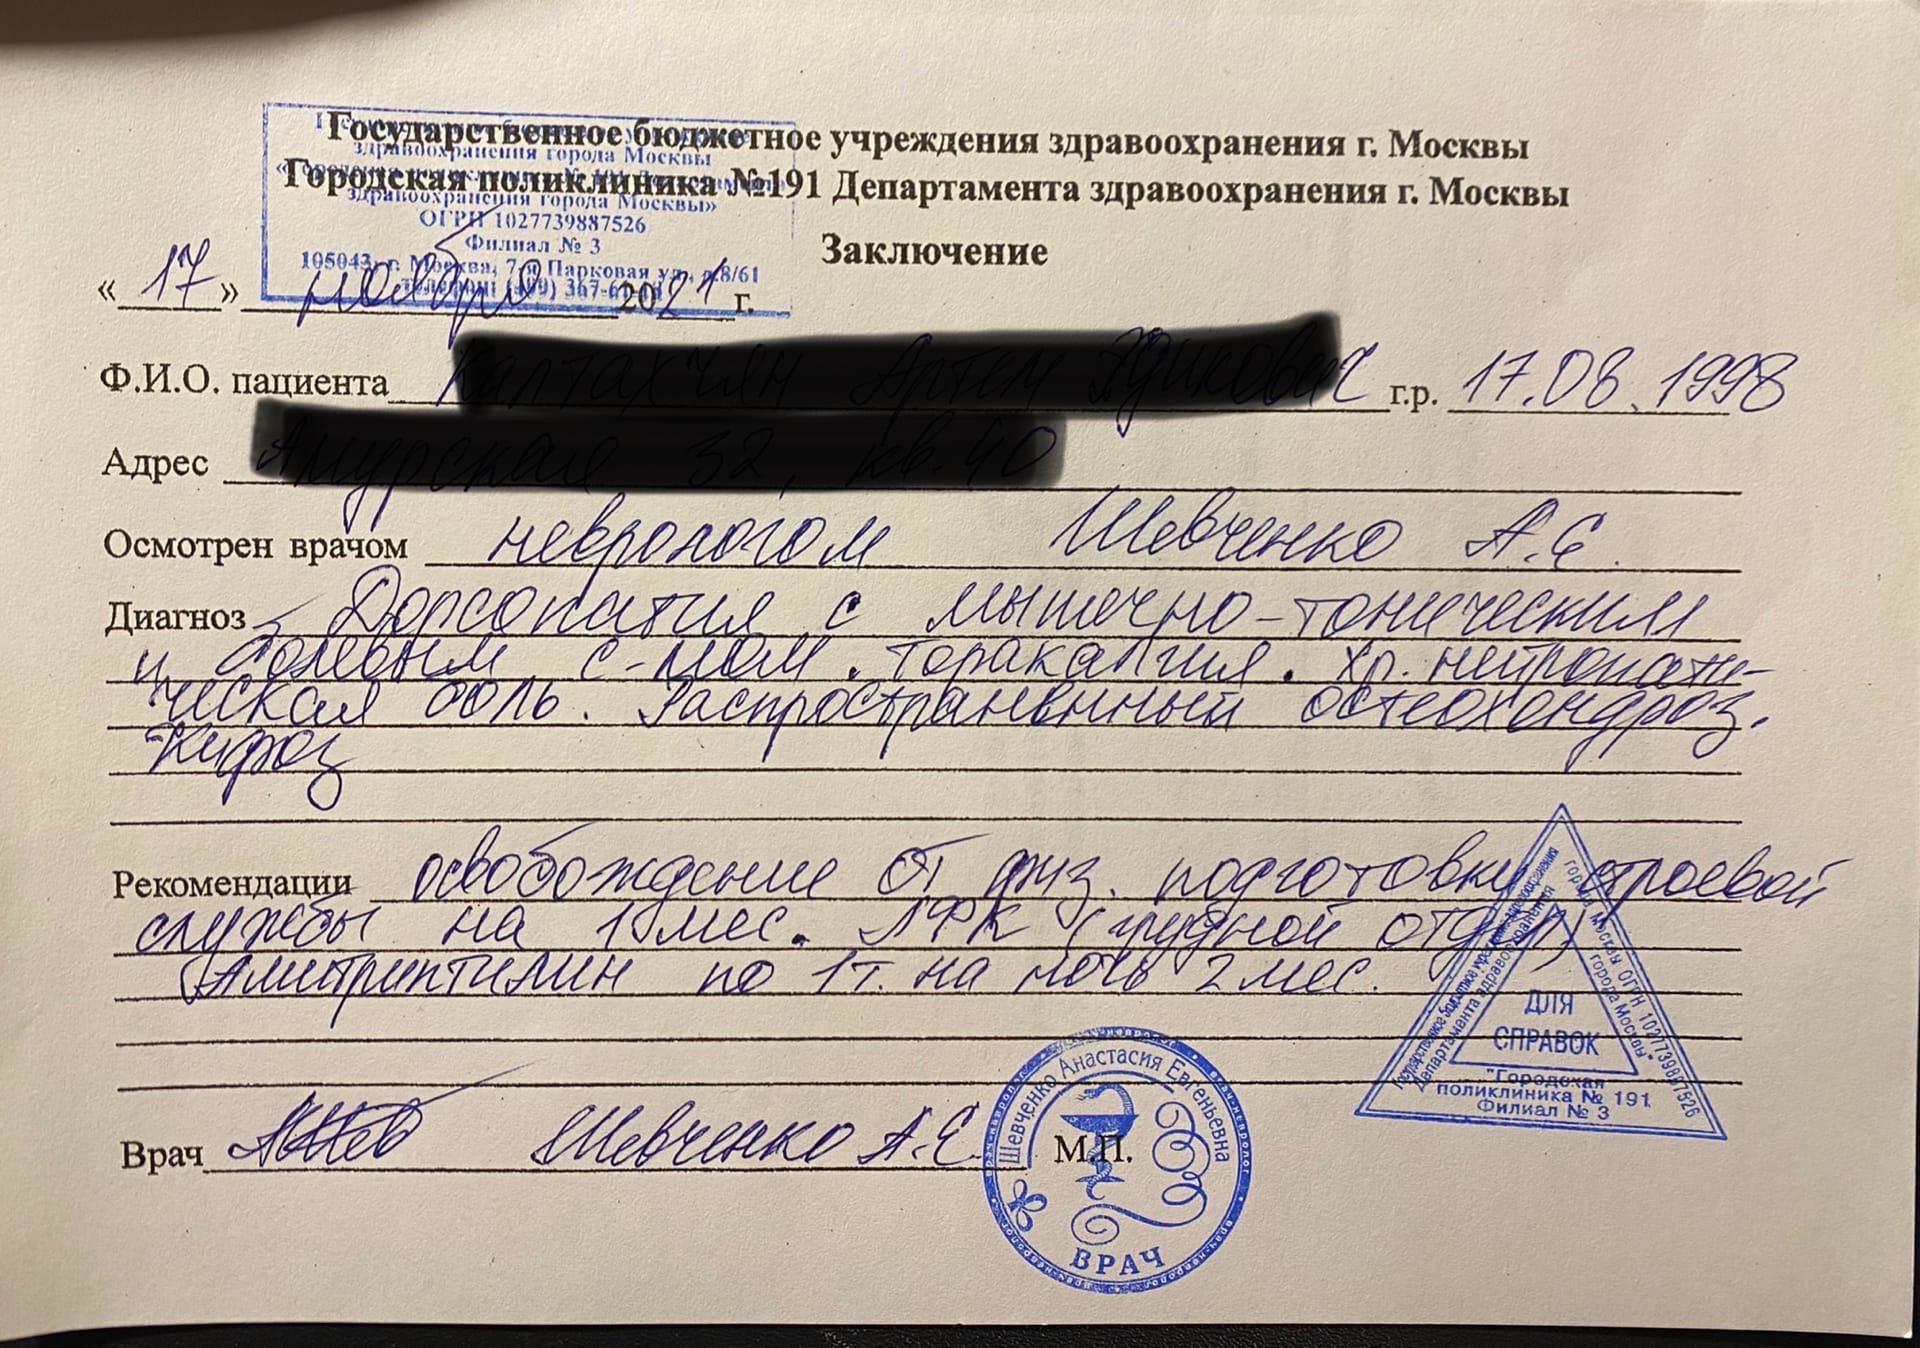 Государственное бюджетное учреждения здравоохранения г. Москвы
Городская поликлиника №191 Департамента здравоохранения г. Москвы
здравоохранения города Москвы
здравоохранения города Москвы»
ОГРН 1027739887526
Филиал № 3
105043, г. Москва, 7-я Парковая ул., д.8/61
Заключение
«17» ноября 2021 г.
Ф.И.О. пациента г.р. 17.08.1998
Адрес
Осмотрен врачом неврологом Шевченко А.Е.
Диагноз Дорсопатия с мышечно-тоническим
и болевым с-мом. Торакалгия. Хр. нейропати-
ческая боль. Распространенный остеохондроз.
Кифоз
Рекомендации освобождение от физ. подготовки, строевой
службы на 1 мес. ЛФК (грудной отдел)
Амитриптилин по 1т. на ночь 2 мес.
Государственное бюджетное учреждение здравоохранения
города Москвы ОГРН 1027739887526
Департамента здравоохранения
города Москвы"
ДЛЯ
СПРАВОК
"Городская
поликлиника № 191
Филиал № 3
Врач Шевченко А.Е. М.П.
Шевченко Анастасия Евгеньевна
ВРАЧ
врач-невролог